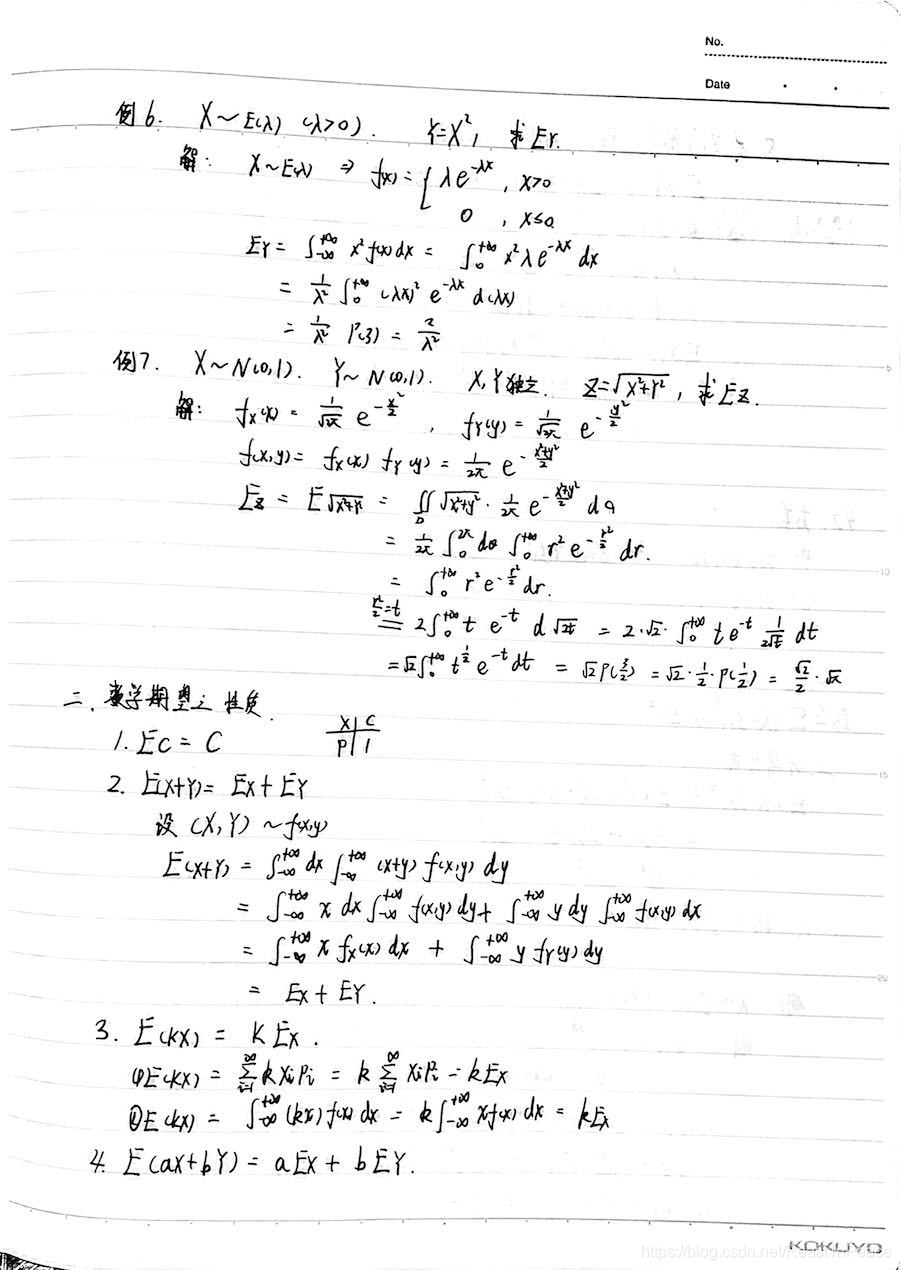 No.
Date
例6. X~E(λ) (λ>0). Y=X², 求EY.
解: X~E(λ) ⇒ f(x) = { λe^{-λx}, x>0
0, x≤0
EY = ∫_{-∞}^{+∞} x²f(x)dx = ∫_0^{+∞} x²λe^{-λx} dx
= 1/λ² ∫_0^{+∞} (λx)² e^{-λx} d(λx)
= 1/λ² Γ(3) = 2/λ²
例7. X~N(0,1). Y~N(0,1). X,Y独立. Z=√(X²+Y²), 求EZ.
解: f_X(x) = 1/√(2π) e^{-x²/2}, f_Y(y) = 1/√(2π) e^{-y²/2}
f(x,y) = f_X(x) f_Y(y) = 1/2π e^{-(x²+y²)/2}
EZ = E√(X²+Y²) = ∬_D √(x²+y²) · 1/2π e^{-(x²+y²)/2} dσ
= 1/2π ∫_0^{2π} dθ ∫_0^{+∞} r² e^{-r²/2} dr.
= ∫_0^{+∞} r² e^{-r²/2} dr.
r²/2=t = 2∫_0^{+∞} t e^{-t} d√(2t) = 2·√2·∫_0^{+∞} t e^{-t} 1/(2√t) dt
= √2∫_0^{+∞} t^{1/2} e^{-t} dt = √2 Γ(3/2) = √2 · 1/2 · Γ(1/2) = √2/2 · √π
二. 数学期望之性质.
1. EC = C X | C
P | 1
2. E(X+Y) = EX + EY
设 (X,Y) ~ f(x,y)
E(X+Y) = ∫_{-∞}^{+∞} dx ∫_{-∞}^{+∞} (x+y) f(x,y) dy
= ∫_{-∞}^{+∞} x dx ∫_{-∞}^{+∞} f(x,y) dy + ∫_{-∞}^{+∞} y dy ∫_{-∞}^{+∞} f(x,y) dx
= ∫_{-∞}^{+∞} x f_X(x) dx + ∫_{-∞}^{+∞} y f_Y(y) dy
= EX + EY.
3. E(kX) = kEX.
①E(kX) = ∑_{i=1}^{∞} k x_i p_i = k ∑_{i=1}^{∞} x_i p_i = kEX
②E(kX) = ∫_{-∞}^{+∞} (kx) f(x) dx = k∫_{-∞}^{+∞} x f(x) dx = kEX
4. E(aX+bY) = aEX + bEY.
5
10
15
20
KOKUYO